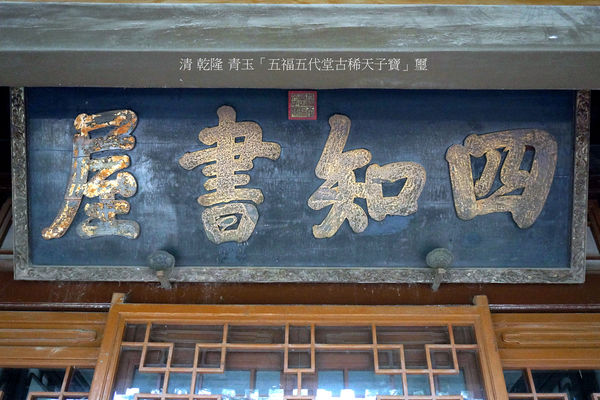 清 乾隆 青玉「五福五代堂古稀天子寶」璽
四知書屋